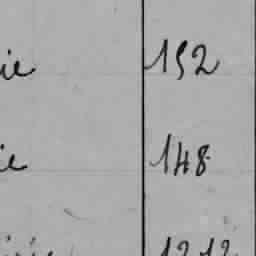 ie 152
ie 148